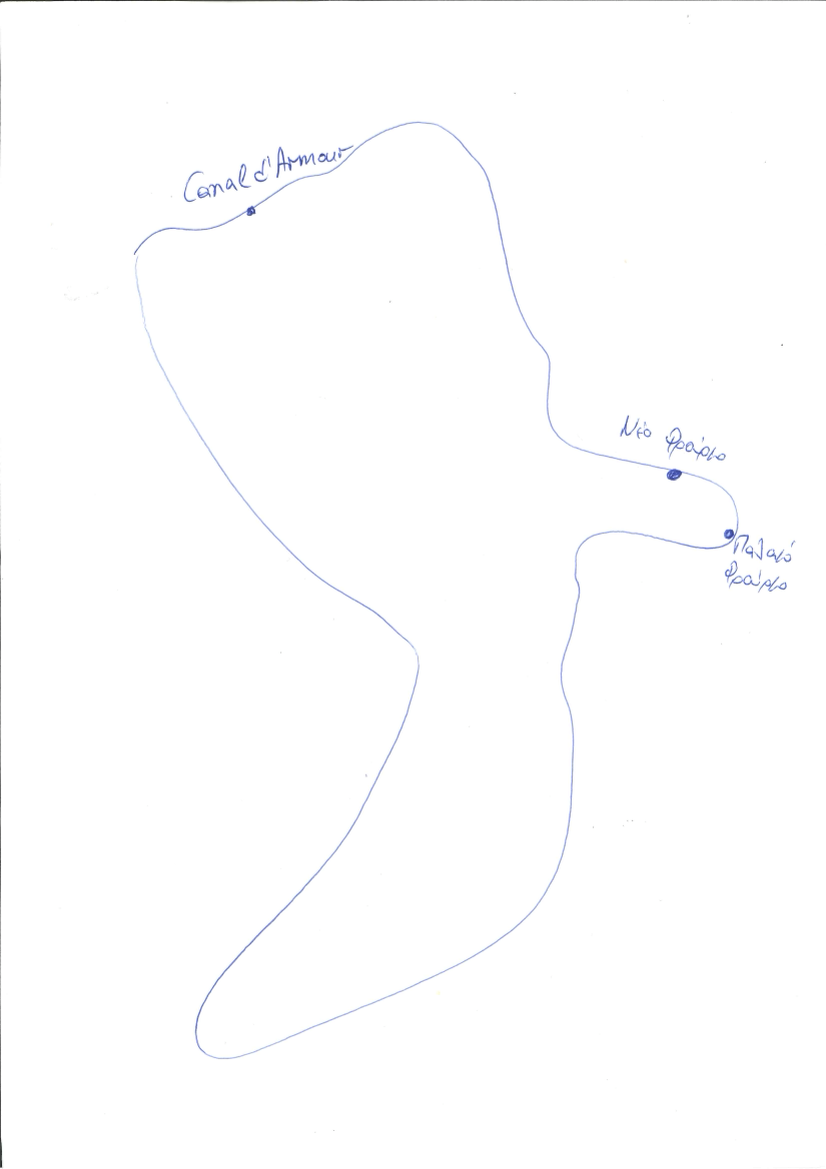 Canal d'Armour
Νέο Φρούριο
Παλαιό
Φρούριο